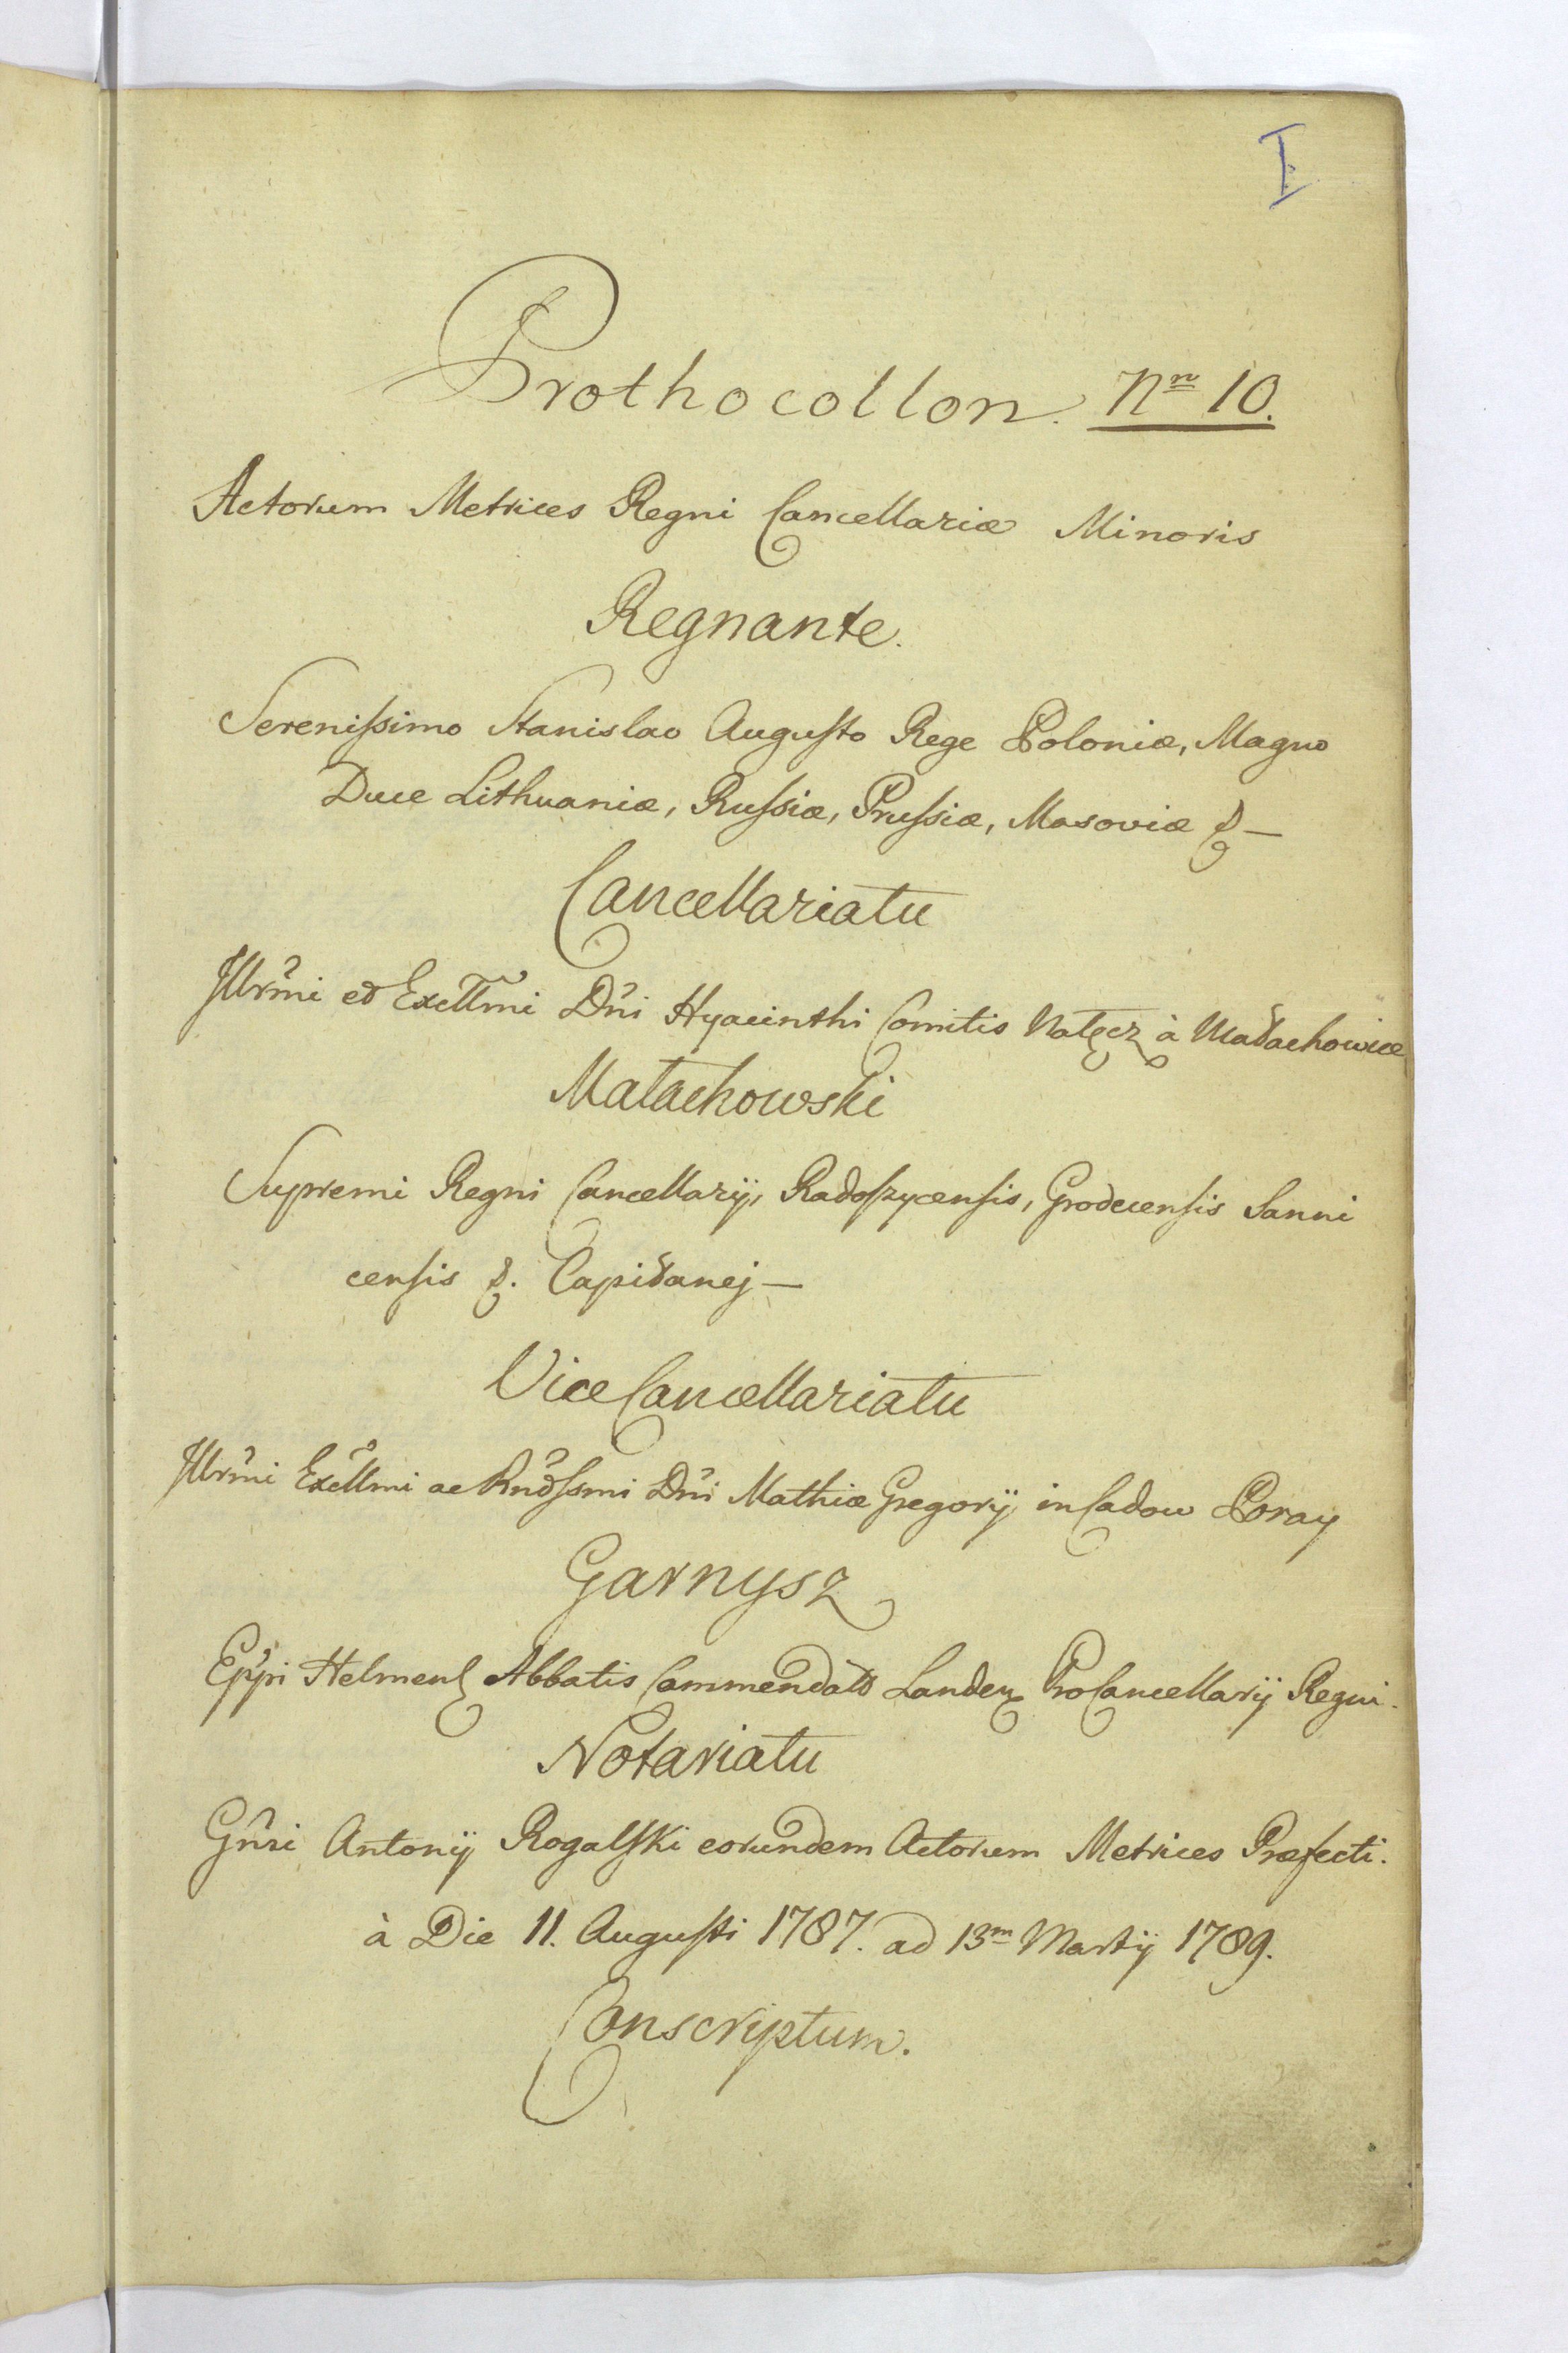 I
Prothocollon. Nrn 10.
Actorum Metrices Regni Cancellariæ Minoris
Regnante.
Serenissimo Stanislao Augusto Rege Poloniæ, Magno
Duce Lithuaniæ, Russiæ, Prussiæ, Masoviæ &—
Cancellariatu
Illrm̃i et Excellm̃i Dñi Hyacinthi Comitis Nałęcz à Małachowice
Małachowski
Supremi Regni Cancellarÿ, Radoszycensis, Grodecensis Sanni
censis &. Capitanej—
ViceCancellariatu
Illrm̃i Excellm̃i ac Rnd̃ssmi Dñi Mathiæ Gregorÿ in Cadow Poray
Garnysz
Epp̃i Helmens Abbatis Commendat Landen ProCancellarÿ Regni.
Notariatu
Gñsi Antonÿ Rogalski eorundem Actorum Metrices Præfecti.
à Die 11. Augusti 1787. ad 13m Martÿ 1789.
Conscriptum.